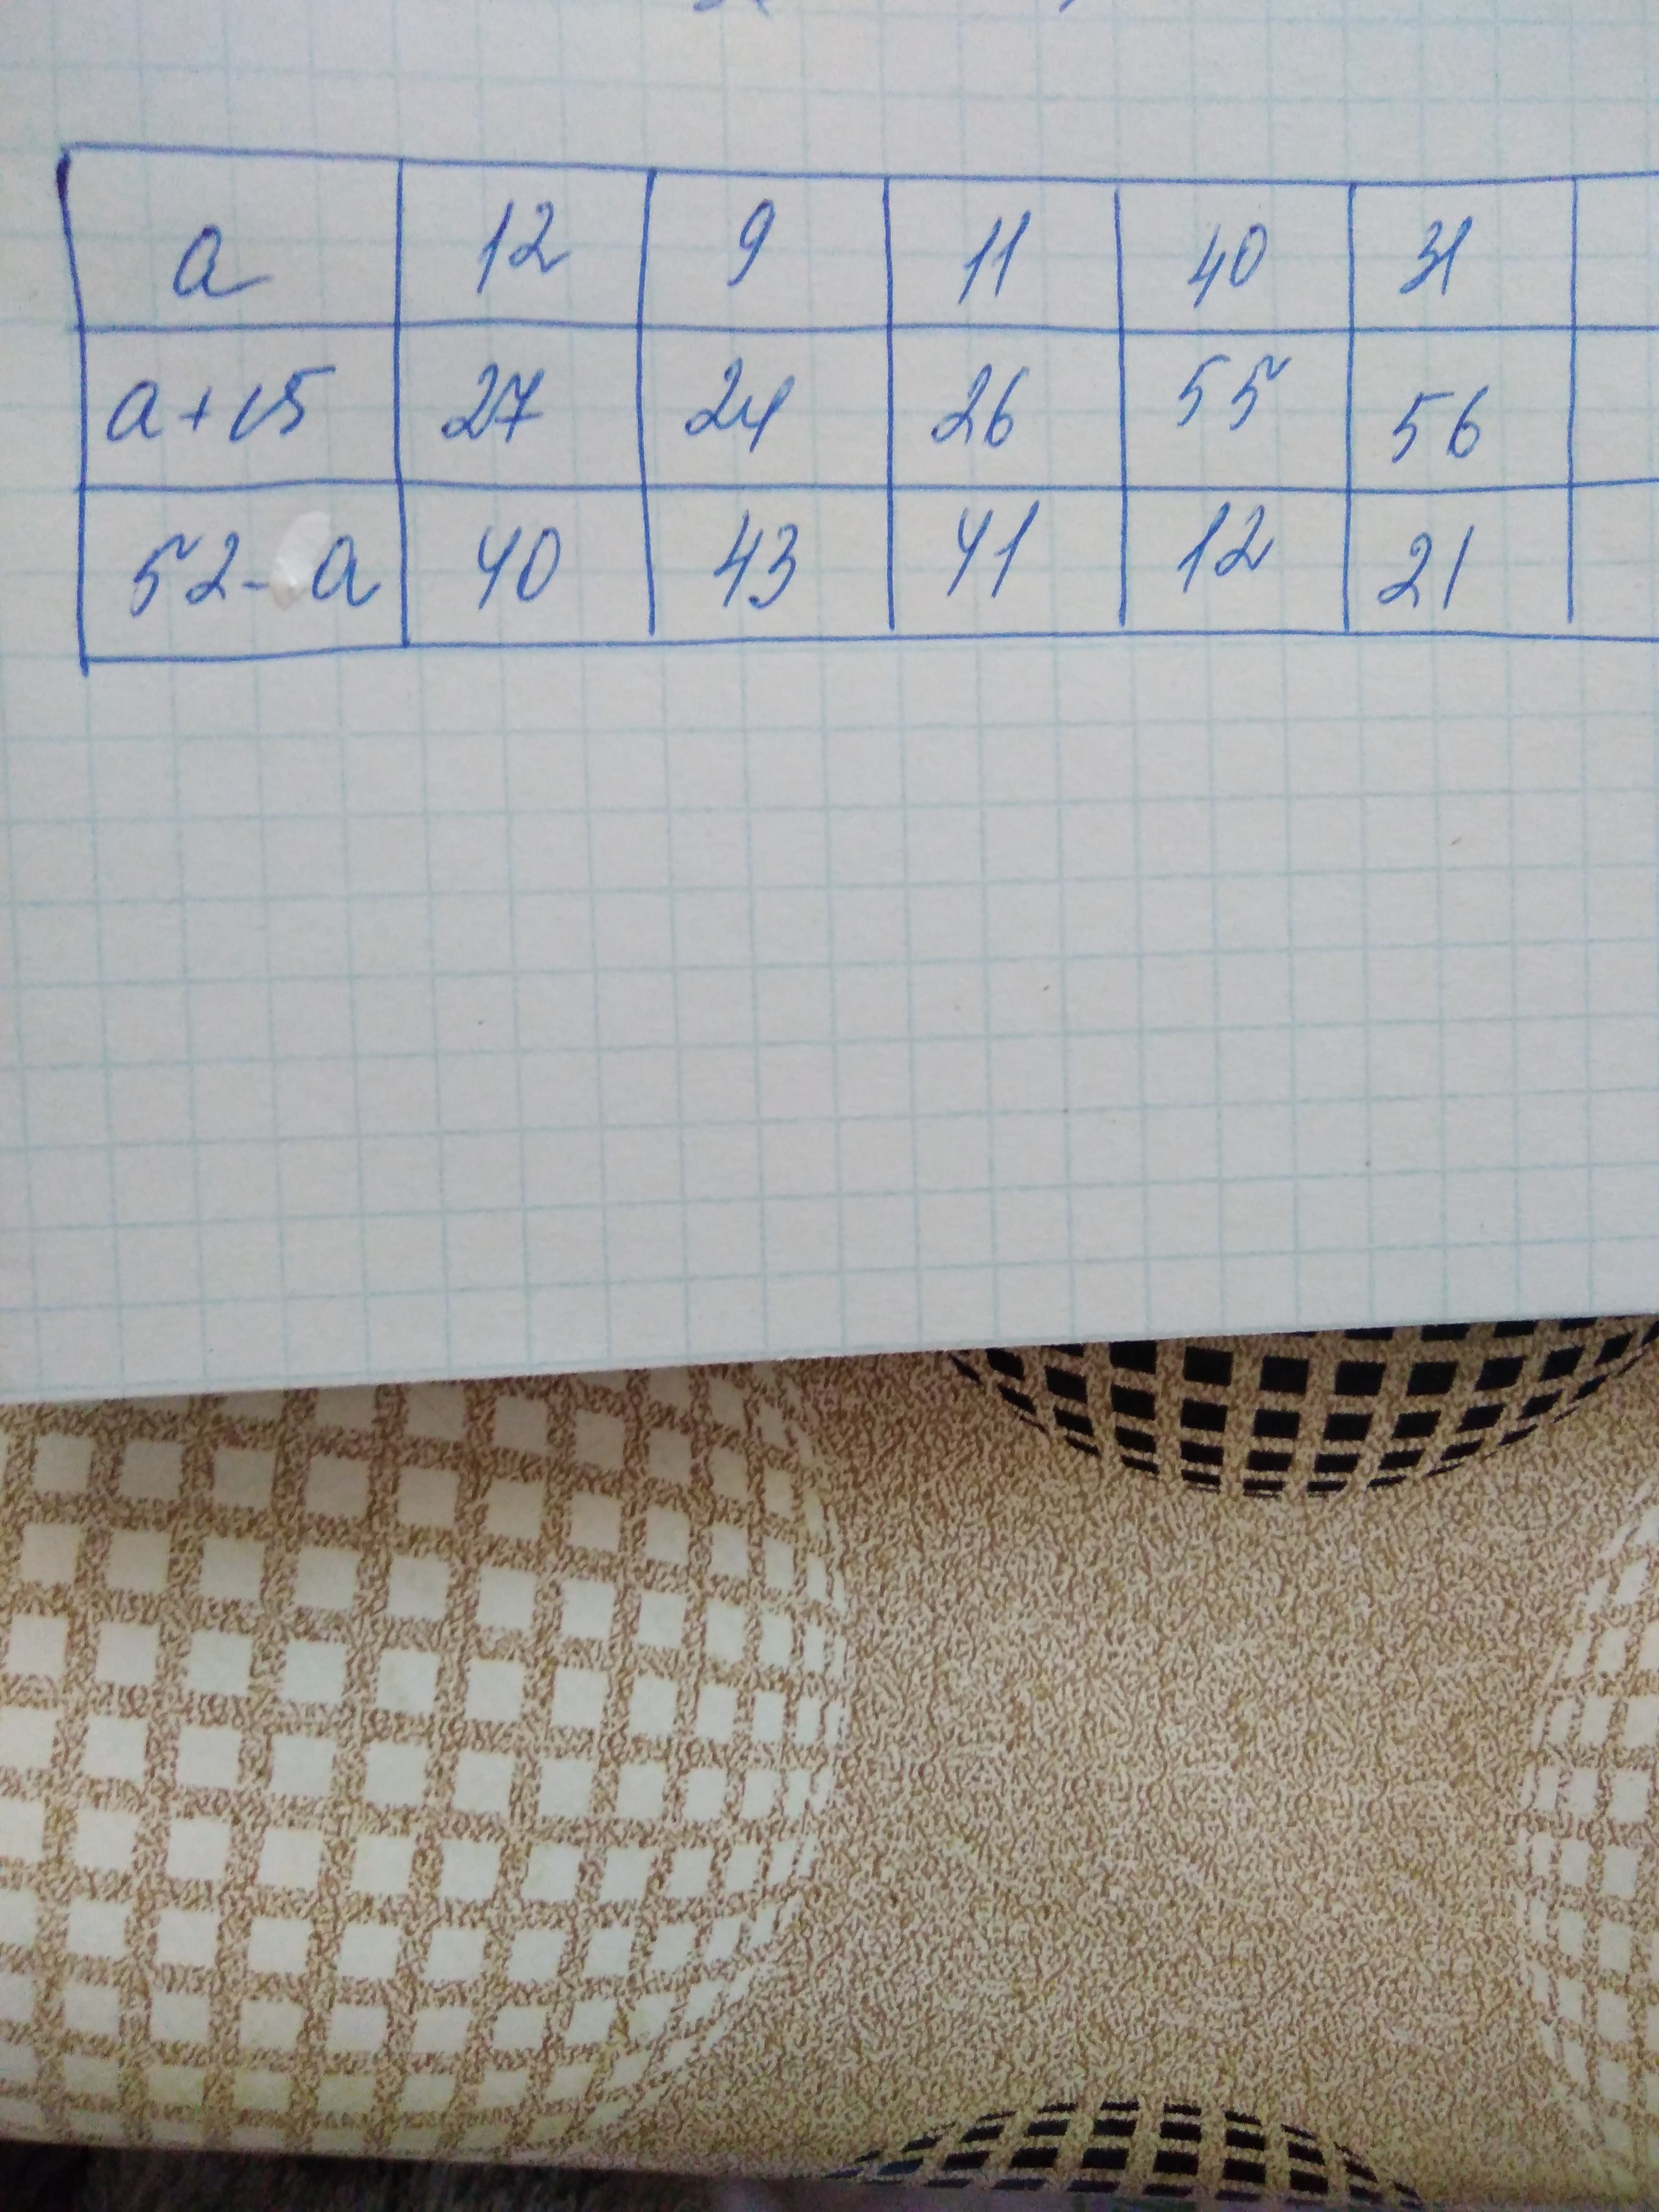 a 12 9 11 40 31
a+15 27 24 26 55 56
52-a 40 43 41 12 21